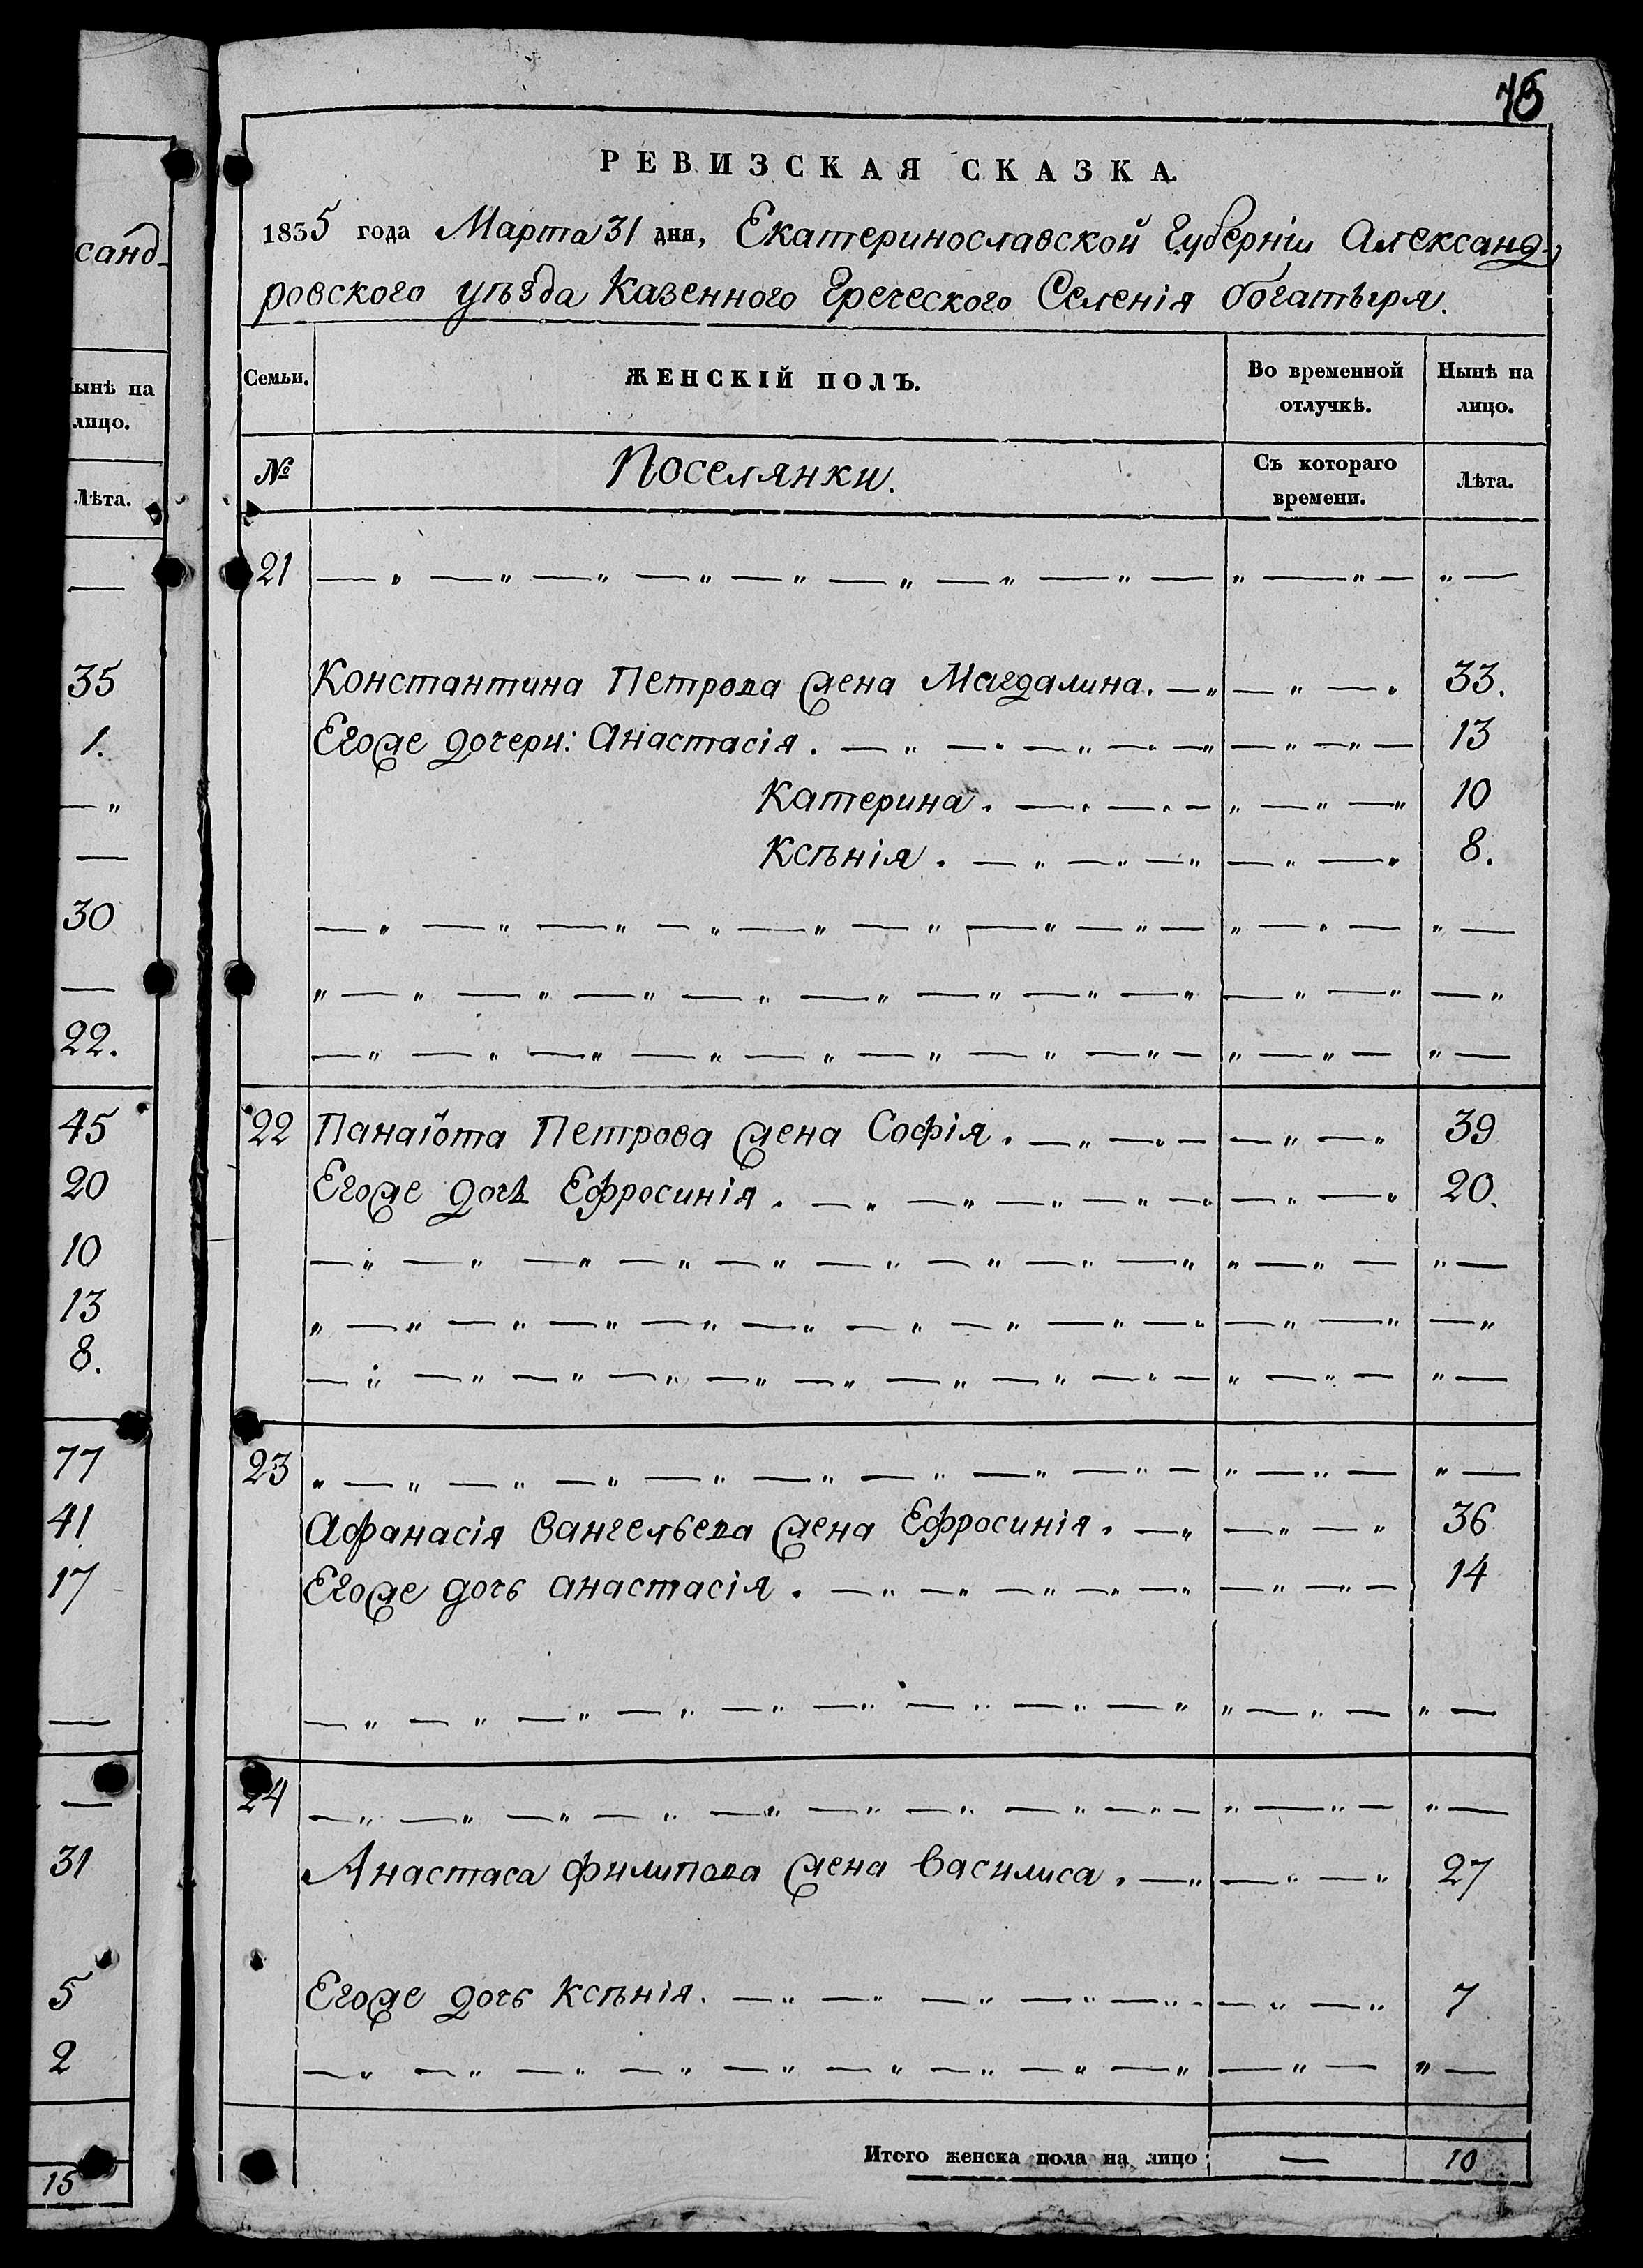 санд-
ынѣ на
лицо.
Лѣта.
35
1.
30
22.
45
20
10
13
8.
77
41
17
31
5
2
15
РЕВИЗСКАЯ СКАЗКА.
1835 года Марта 31 дня, Екатеринославской Губерніи Александ-
ровского уѣзда Казенного Греческого Селенія богатыря.
Семьи. ЖЕНСКІЙ ПОЛЪ. Во временной отлучкѣ. Нынѣ на лицо.
№ Поселянки. Съ котораго времени. Лѣта.
21 — „ — „ — „ — „ — „ — „ — „ — „ — „ — „ — „ —
Константина Петрова жена Магдалина. — „ — „ — „ 33.
Егоже дочери: Анастасія. — „ — „ — „ — „ — „ — „ — „ — 13
Катерина. — „ — „ — „ — „ — „ 10
Ксѣнія. — „ — „ — „ — „ — „ 8.
— „ — „ — „ — „ — „ — „ — „ — „ — „ — „ — „ —
„ — „ — „ — „ — „ — „ — „ — „ — „ — „ — „ — „
— „ — „ — „ — „ — „ — „ — „ — „ — „ — „ — „ —
22 Панаіота Петрова жена Софія. — „ — „ — — „ — „ 39
Егоже дочь Ефросинія. — „ — „ — „ — „ — „ — „ — „ 20.
— „ — „ — „ — „ — „ — „ — „ — „ — „ „ — „ — „ —
„ — „ — „ — „ — „ — „ — „ — „ — „ — „ — „ — „ — „
— „ — „ — „ — „ — „ — „ — „ — „ — „ — „ — „ — „ —
23 „ — „ — „ — „ — „ — „ — „ — „ — „ — „ — „ — „ —
Афанасія Вангельева жена Ефросинія. — „ — „ — „ 36
Егоже дочь анастасія. — „ — „ — „ — „ — „ — „ — „ — 14
— „ — „ — „ — „ — „ — „ — „ — „ — „ „ — „ — „ —
24 — „ — „ — „ — „ — „ — „ — „ — „ — „ — „ — „ — „ —
Анастаса филипова жена Василиса. — „ — „ — „ 27
Егоже дочь Ксѣнія. — „ — „ — „ — „ — „ — — „ — „ 7
— „ — „ — „ — „ — „ — „ — „ — „ — „ — „ — „ —
Итого женска пола на лицо: — 10